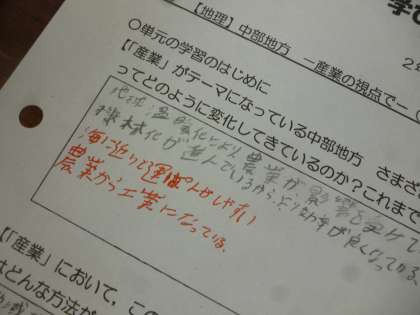 学習
【地理】中部地方 ー産業の視点でー (
2年
○単元の学習のはじめに
【「産業」がテーマになっている中部地方 さまざ
ってどのように変化してきているのか？これま
地球温暖化により農業が影響を受け
機械化が進んでいるから、より効率が良くなっている。
海に近くて運ぱんがしやすい
農業から工業になっている。
【「産業」において、この
はどんな方法が